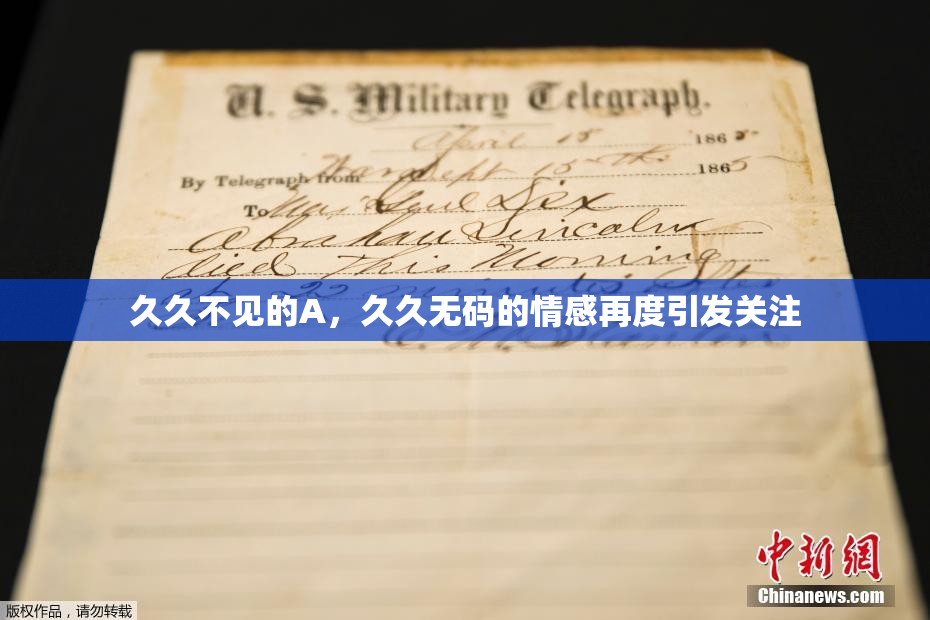 U. S. Military Telegraph.
April 15 1865
By Telegraph from War Dept 15th 1865
To Maj Genl Dix
Abraham Lincoln
died This Morning
at 22 minutes after
久久不见的A，久久无码的情感再度引发关注
中新網
Chinanews.com
版权作品，请勿转载